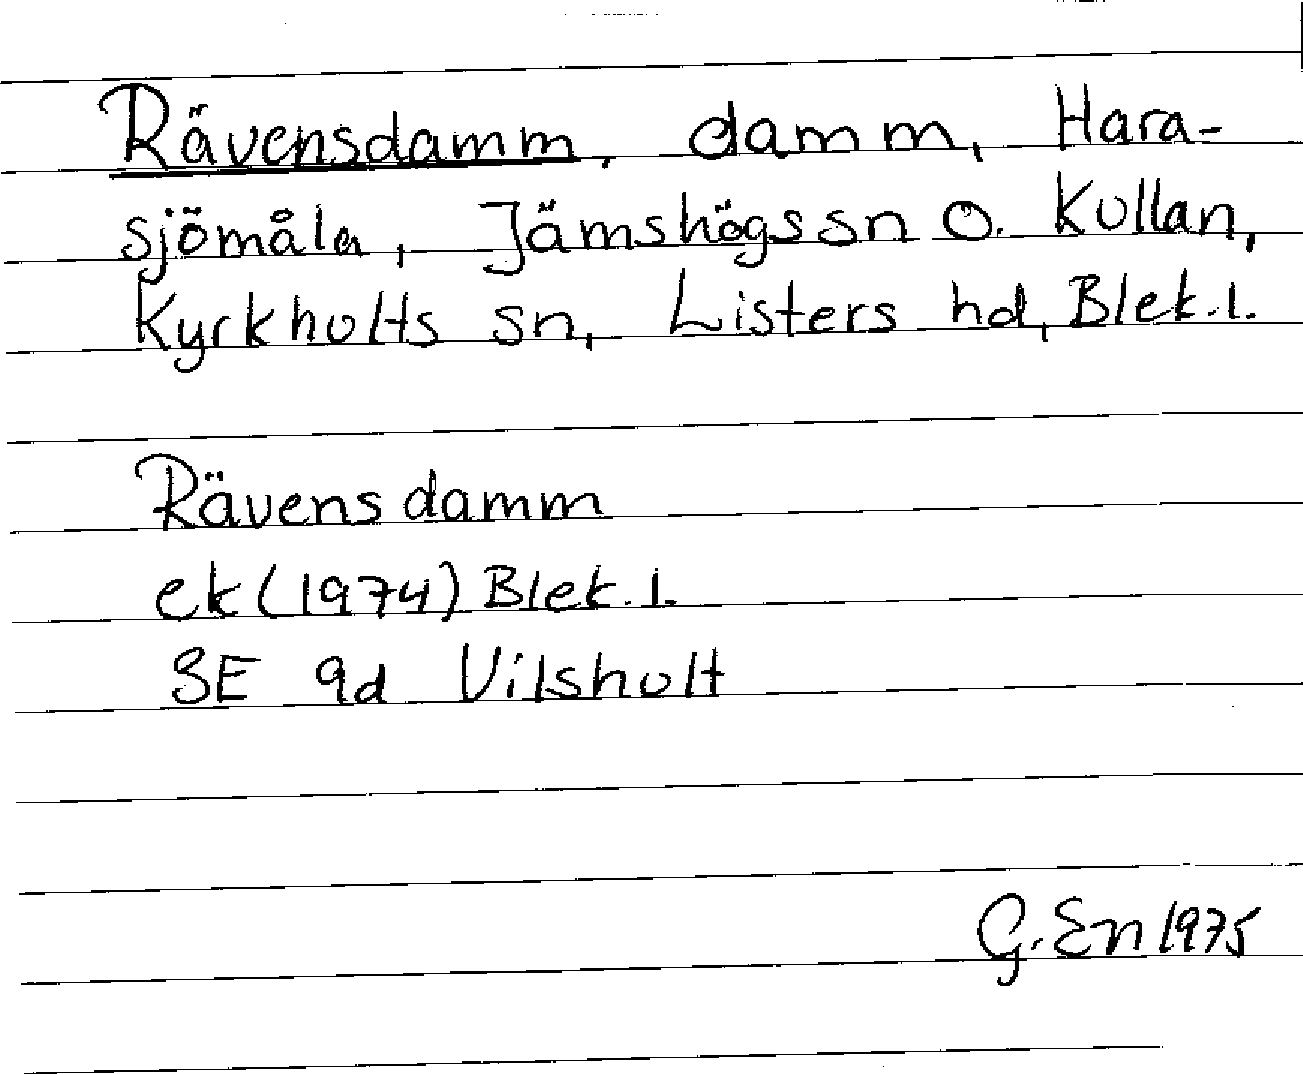 Rävensdamm, damm, Hara-
sjömåla, Jämshögs sn O. Kullan,
Kyrkhults sn, Listers hd, Blek. l.
Rävens damm
ek (1974) Blek. l.
3E 9d Vilshult
G. En 1975